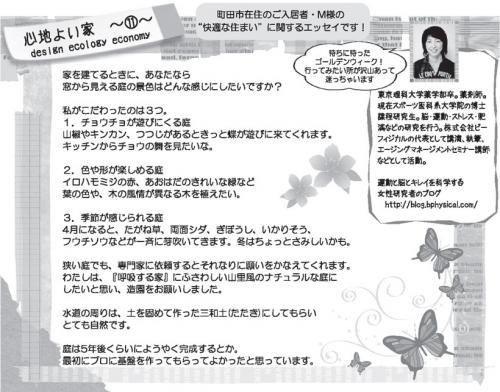 心地よい家 ~⑪~
design ecology economy
町田市在住のご入居者・M様の
“快適な住まい”に関するエッセイです!
待ちに待った
ゴールデンウィーク!
行ってみたい所が沢山あって
迷っちゃいます
家を建てるときに、あなたなら
窓から見える庭の景色はどんな感じにしたいですか?
私がこだわったのは3つ。
1.チョウチョが遊びにくる庭
山椒やキンカン、つつじがあるときっと蝶が遊びに来てくれます。
キッチンからチョウの舞を見たいな。
2.色や形が楽しめる庭
イロハモミジの赤、あおはだのきれいな緑など
葉の色や、木の風情が異なる木を植えたい。
3.季節が感じられる庭
4月になると、たがね草、両面シダ、ぎぼうし、いかりそう、
フウチソウなどが一斉に芽吹いてきます。冬はちょっとさみしいかも。
狭い庭でも、専門家に依頼するとそれなりに願いをかなえてくれます。
わたしは、『呼吸する家』にふさわしい山里風のナチュラルな庭に
したいと思い、造園をお願いしました。
水道の周りは、土を固めて作った三和土(たたき)にしてもらい
とても自然です。
庭は5年後くらいにようやく完成するとか。
最初にプロに基盤を作ってもらってよかったと思っています。
東京理科大学薬学部卒。薬剤師。
現在スポーツ医科系大学院の博士
課程研究生。脳・運動・ストレス・肥
満などの研究を行う。株式会社ビー
フィジカルの代表として講演、執筆、
エージングマネージメントセミナー講師
などとして活動。
運動と脳とキレイを科学する
女性研究者のブログ
http://blog.bphysical.com/